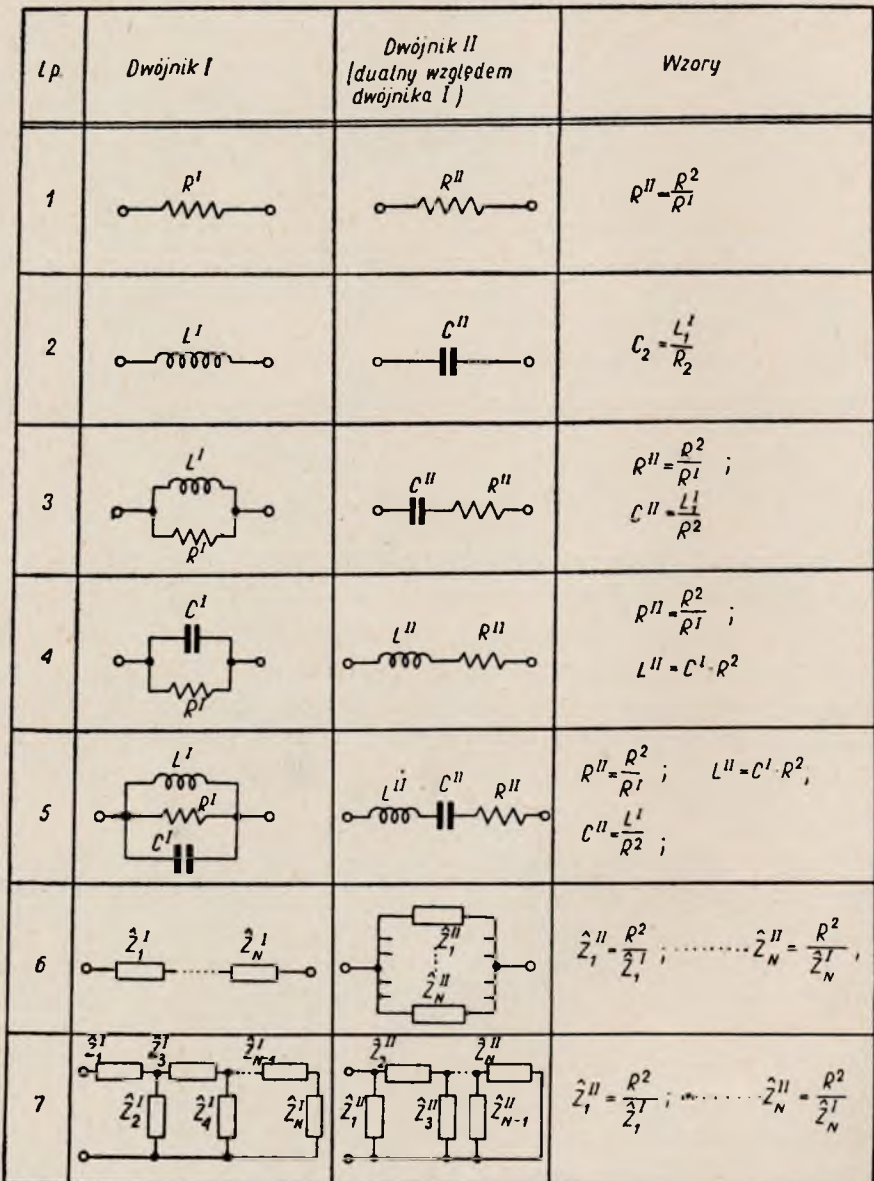 Lp.
Dwójnik I
Dwójnik II
(dualny względem
dwójnika I)
Wzory
1
R^I
R^II
R^II = R^2/R^I
2
L^I
C^II
C_2 = L_1^I/R_2
3
L^I
R^I
C^II
R^II
R^II = R^2/R^I ;
C^II = L_1^I/R^2
4
C^I
R^I
L^II
R^II
R^II = R^2/R^I ;
L^II = C^I · R^2
5
L^I
R^I
C^I
L^II
C^II
R^II
R^II = R^2/R^I ; L^II = C^I · R^2,
C^II = L^I/R^2 ;
6
Ẑ_1^I ...... Ẑ_N^I
Ẑ_1^II
Ẑ_N^II
Ẑ_1^II = R^2/Ẑ_1^I ; ........ Ẑ_N^II = R^2/Ẑ_N^I ,
7
Ẑ_1^I Ẑ_3^I Ẑ_N-1^I
Ẑ_2^I Ẑ_4^I Ẑ_N^I
Ẑ_2^II Ẑ_N^II
Ẑ_1^II Ẑ_3^II Ẑ_N-1^II
Ẑ_1^II = R^2/Ẑ_1^I ; ........ Ẑ_N^II = R^2/Ẑ_N^I